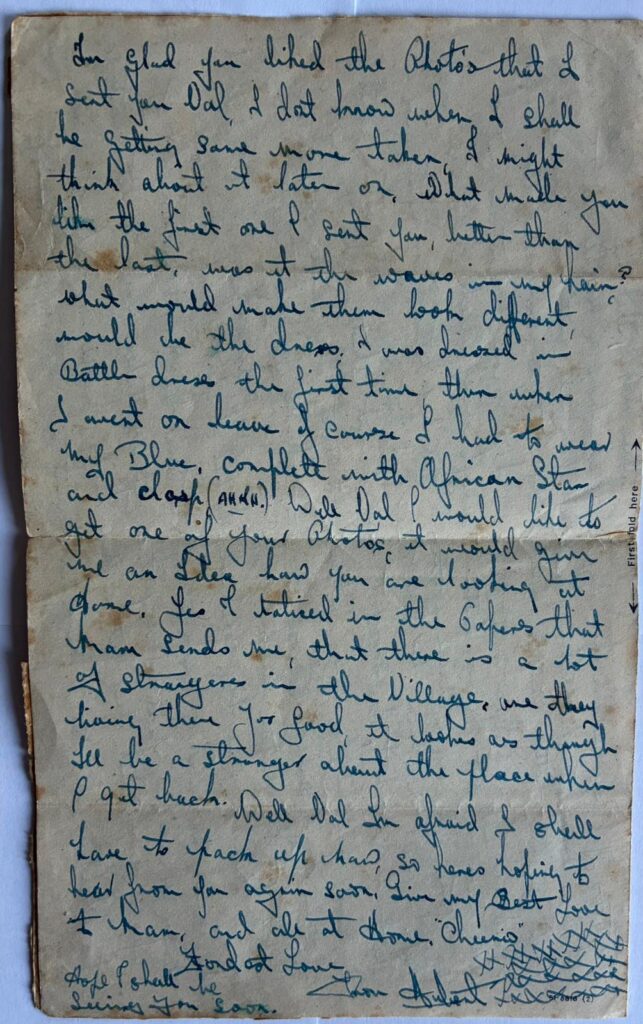 Im glad you liked the Photos that I
sent you Val, I dont know when I shall
be getting some more taken, I might
think about it later on, What made you
like the first one I sent you, better than
the last, was it the waves in my hair?
what would make them look different,
would be the dress, I was dressed in
Battle dress the first time, then when
I went on leave of course I had to wear
my Blue, complete with African Star
and clasp (AHHH.) Well Val I would like to
get one of your Photos, it would give
me an Idea how you are looking at
Home, Yes I noticed in the Papers that
Mam sends me, that there is a lot
of strangers in the Village, are they
living there for Good, it looks as though
Ill be a stranger about the place when
I get back.
Well Val Im afraid I shall
have to pack up now, so heres hoping to
hear from you again soon, Give my Best Love
to Mam, and all at Home, "Cheerio"
Fondest Love
From Hubert
Hope I shall be
Seeing You Soon.
First fold here
(2)